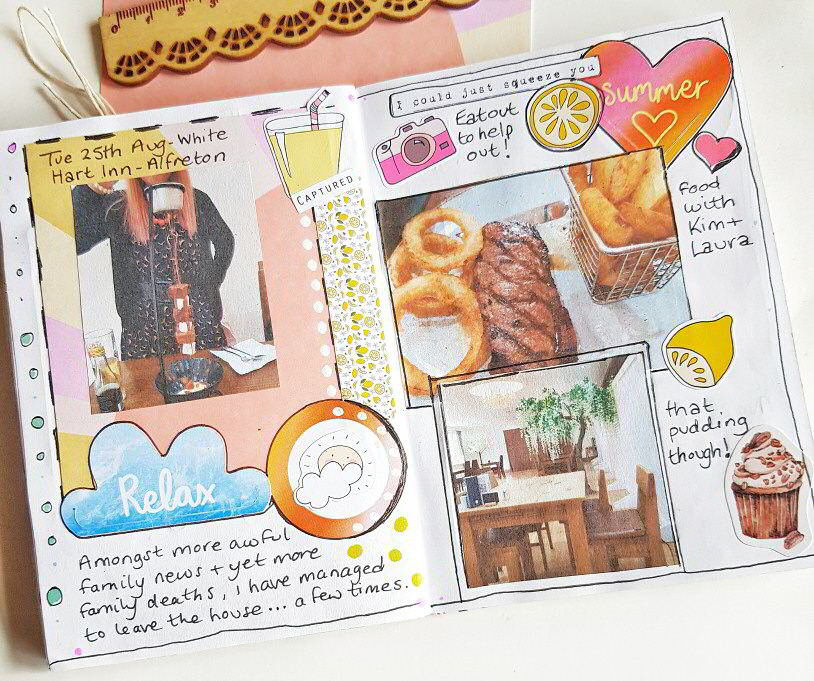 Tue 25th Aug - White
Hart Inn - Alfreton
CAPTURED
Relax
Amongst more awful
family news + yet more
family deaths, I have managed
to leave the house ... a few times.
I could just squeeze you
Eat out
to help
out!
summer
food
with
Kim +
Laura
that
pudding
though!
0
1
2
3